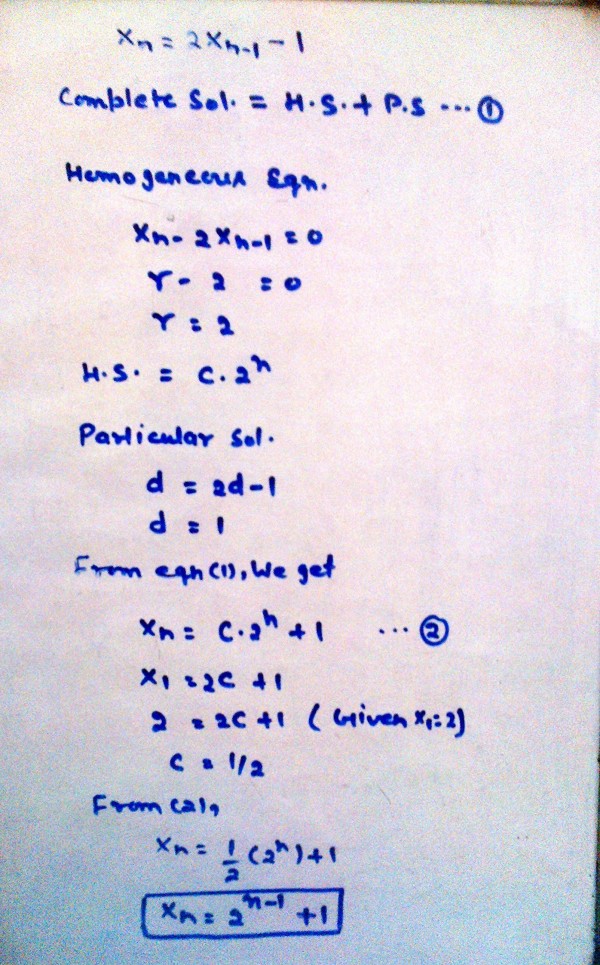 Xn = 2Xn-1 - 1
Complete Sol. = H.S.+ P.S ... ①
Homogeneous Eqn.
Xn - 2Xn-1 = 0
r - 2 = 0
r = 2
H.S. = C.2^n
Particular Sol.
d = 2d-1
d = 1
From eqn (1), We get
Xn = C.2^n + 1 ... ②
X1 = 2C + 1
2 = 2C + 1 (Given X1=2)
C = 1/2
From (2),
Xn = 1/2 (2^n) + 1
Xn = 2^n-1 + 1